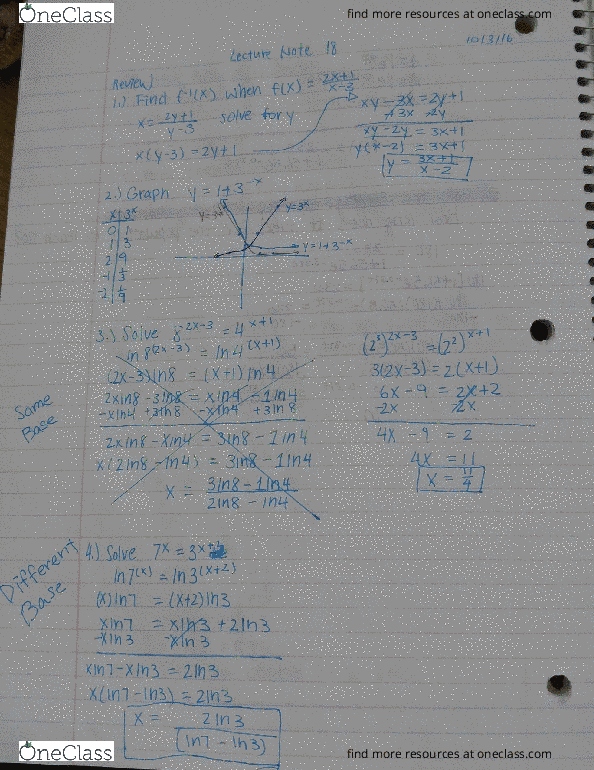 OneClass
find more resources at oneclass.com
10/3/16
Lecture Note 18
Review
1.) Find f⁻¹(x) when f(x) = 2x+1 / x-3
x = 2y+1 / y-3 solve for y
x(y-3) = 2y+1
xy - 3x = 2y+1
+3x -2y
xy - 2y = 3x+1
y(x-2) = 3x+1
y = 3x+1 / x-2
2.) Graph y = 1+3^-x
x | 3^x
0 | 1
1 | 3
2 | 9
-1 | 1/3
-2 | 1/9
y=3^x
y=1+3^-x
3.) Solve 8^2x-3 = 4^x+1
ln 8^(2x-3) = ln 4^(x+1)
(2x-3)ln8 = (x+1)ln4
2xln8 - 3ln8 = xln4 - 1ln4
-xln4 +3ln8 -xln4 +3ln8
2xln8 - xln4 = 3ln8 - 1ln4
x(2ln8 - ln4) = 3ln8 - 1ln4
x = 3ln8 - 1ln4 / 2ln8 - ln4
Same
Base
(2³)^2x-3 = (2²)^x+1
3(2x-3) = 2(x+1)
6x - 9 = 2x+2
-2x -2x
4x - 9 = 2
4x = 11
x = 11/4
Different
Base
4.) Solve 7^x = 3^x+2
ln7^(x) = ln3^(x+2)
(x)ln7 = (x+2)ln3
xln7 = xln3 + 2ln3
-xln3 -xln3
xln7 - xln3 = 2ln3
x(ln7 - ln3) = 2ln3
x = 2ln3 / (ln7 - ln3)
OneClass
find more resources at oneclass.com